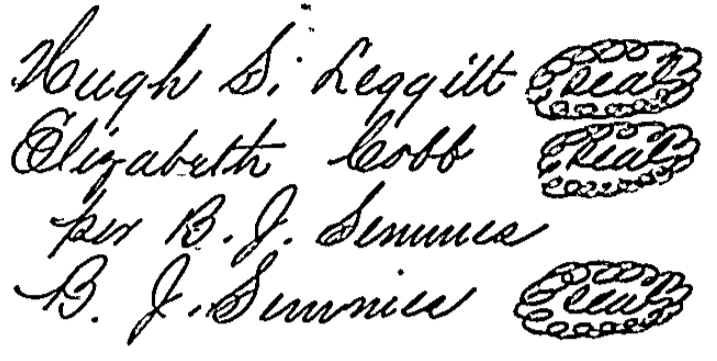 Hugh S. Leggitt Seal
Elizabeth Cobb Seal
per B. J. Semmes
B. J. Semmes Seal